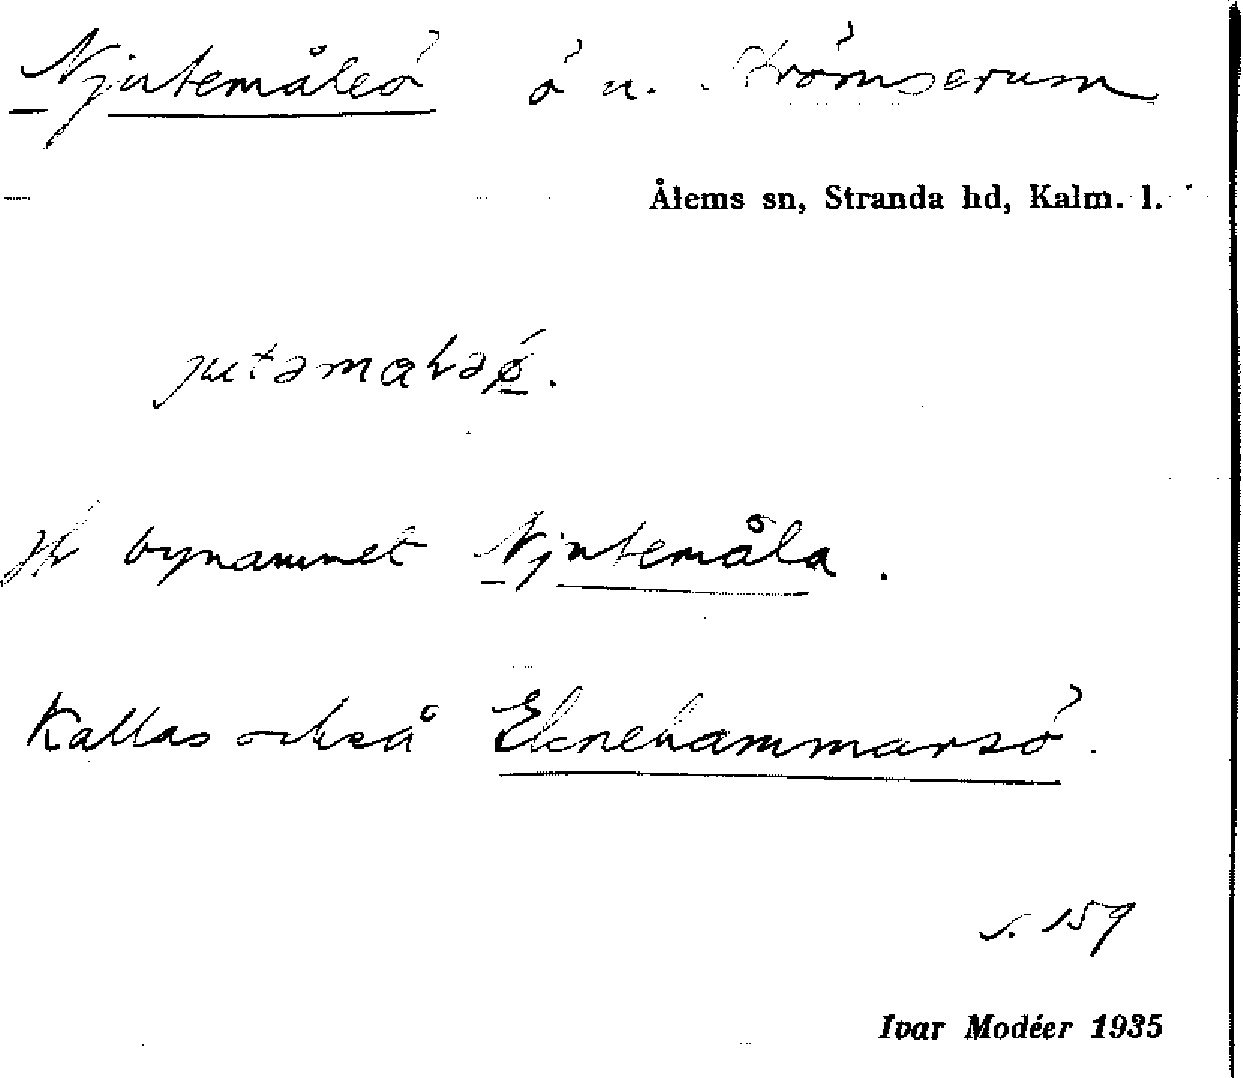 Njutemåleö ö u. Strömserum
Ålems sn, Stranda hd, Kalm. l.
Jfr bynamnet Njutemåla.
Kallas också Eknehammarsö.
s. 159
Ivar Modéer 1935